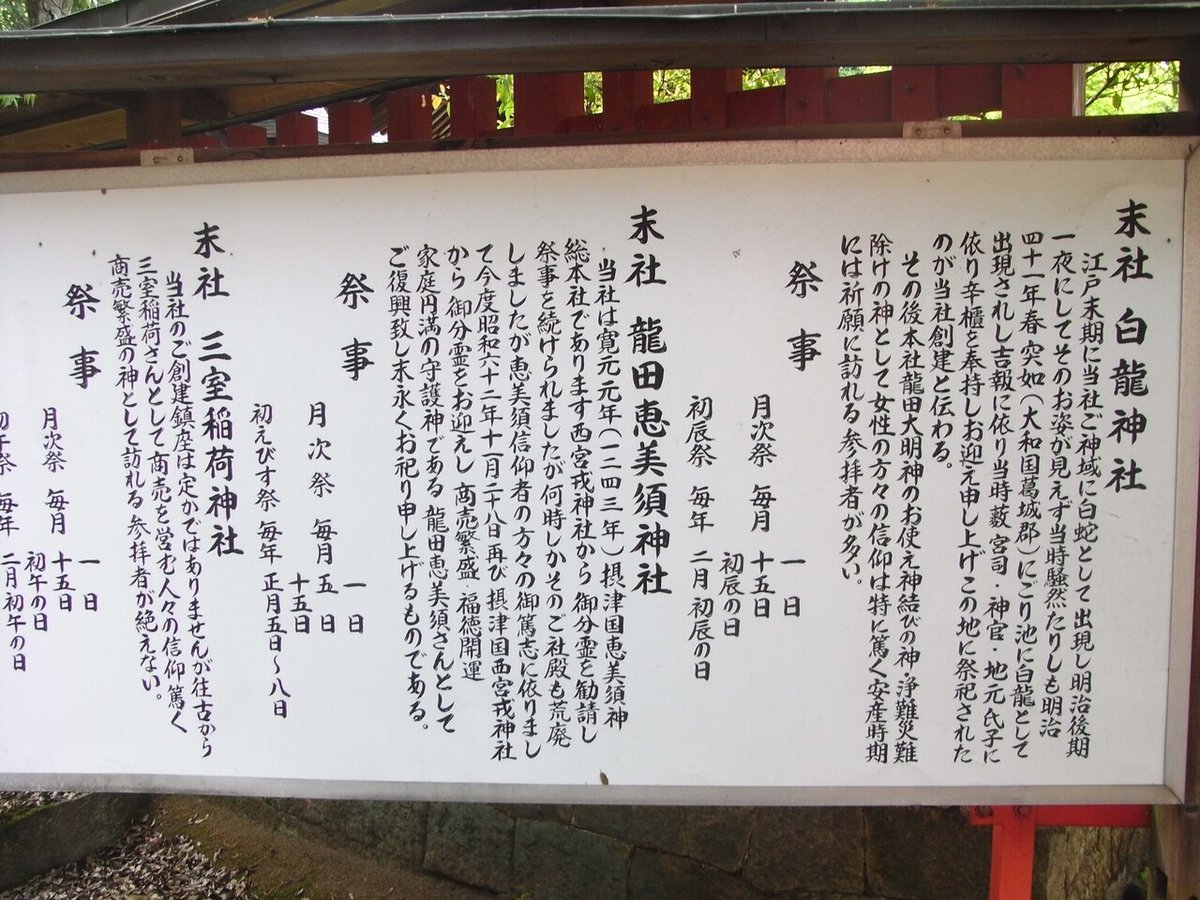 末社 白龍神社
江戸末期に当社ご神域に白蛇として出現し明治後期
一夜にしてそのお姿が見えず当時騒然たりしも明治
四十一年春 突如(大和国葛城郡)にごり池に白龍として
出現されし吉報に依り当時藪 宮司・神官・地元氏子に
依り辛櫃を奉持しお迎え申し上げこの地に祭祀された
のが当社創建と伝わる。
その後本社龍田大明神のお使え神結びの神・浄難災難
除けの神として女性の方々の信仰は特に篤く安産時期
には祈願に訪れる参拝者が多い。
祭事
月次祭 毎月 一日
十五日
初辰の日
初辰祭 毎年 二月 初辰の日
末社 龍田恵美須神社
当社は寛元元年(一二四三年)摂津国恵美須神
総本社であります西宮戎神社から 御分霊を勧請し
祭事を続けられましたが何時しかそのご社殿も荒廃
しましたが恵美須信仰者の方々の御篤志に依りまし
て今度昭和六十二年十一月二十八日再び 摂津国西宮戎神社
から 御分霊をお迎えし 商売繁盛・福徳開運
家庭円満の守護神である 龍田恵美須さんとして
ご復興致し末永くお祀り申し上げるものである。
祭事
月次祭 毎月 一日
五日
十五日
初えびす祭 毎年 正月五日~八日
末社 三室稲荷神社
当社のご創建鎮座は定かではありませんが往古から
三室稲荷さんとして商売を営む人々の信仰篤く
商売繁盛の神として訪れる 参拝者が絶えない。
祭事
月次祭 毎月 一日
十五日
初午の日
初午祭 毎年 二月初午の日